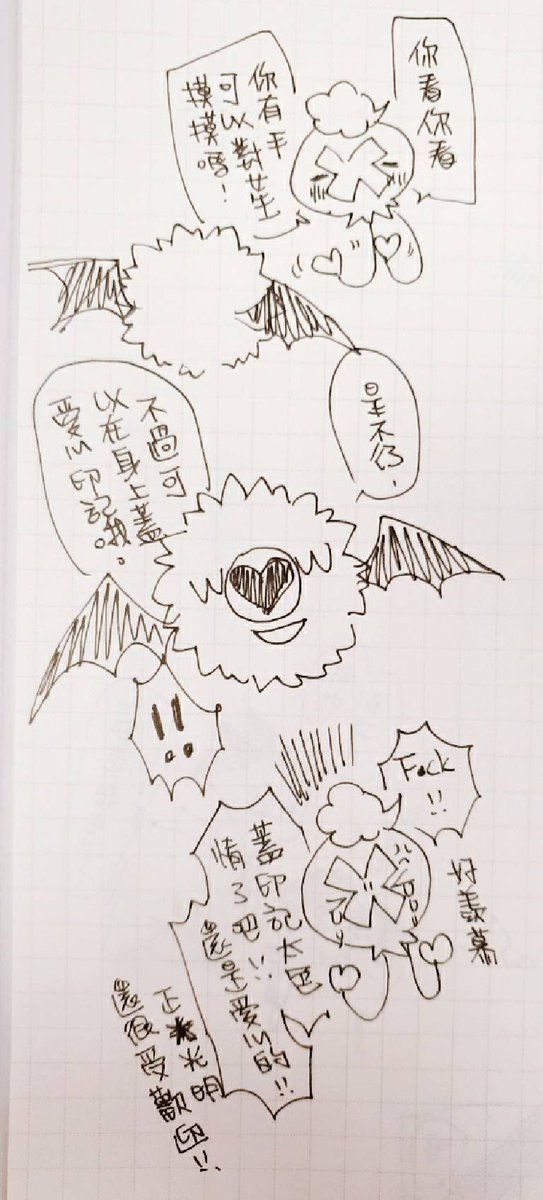 你看你看
你有手
可以對女生
摸摸嗎！
是不行，
不過可
以在身上蓋
愛心印記哦。
!!
F●ck
!!
好羨慕
蓋印記太色
情了吧!!
還是愛心的!!
正大光明
還很受歡迎!!